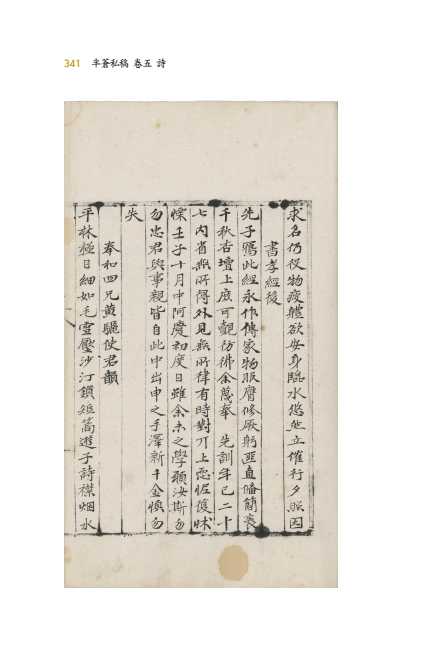 341 半蒼私稿 卷五 詩
求名仍役物疲軆欲安身臨水悠然立催行夕照因
書孝經後
先子寫此經永作傳家物服膺修厥躬匪直備簡裹
千秋杏壇上庶可覩彷彿余蔑奉 先訓年已二十
七內省無所得外見無所律有時對丌上惡怩僾怵
慄壬子十月中阿慶初度日雖余未之學願汝斯勿
勿忠君與事親皆自此中出申之手澤新千金愼勿
失
奉和四兄黃驪使君韻
平林極目細如毛雪壓沙汀鎖短篙遊子詩襟烟水